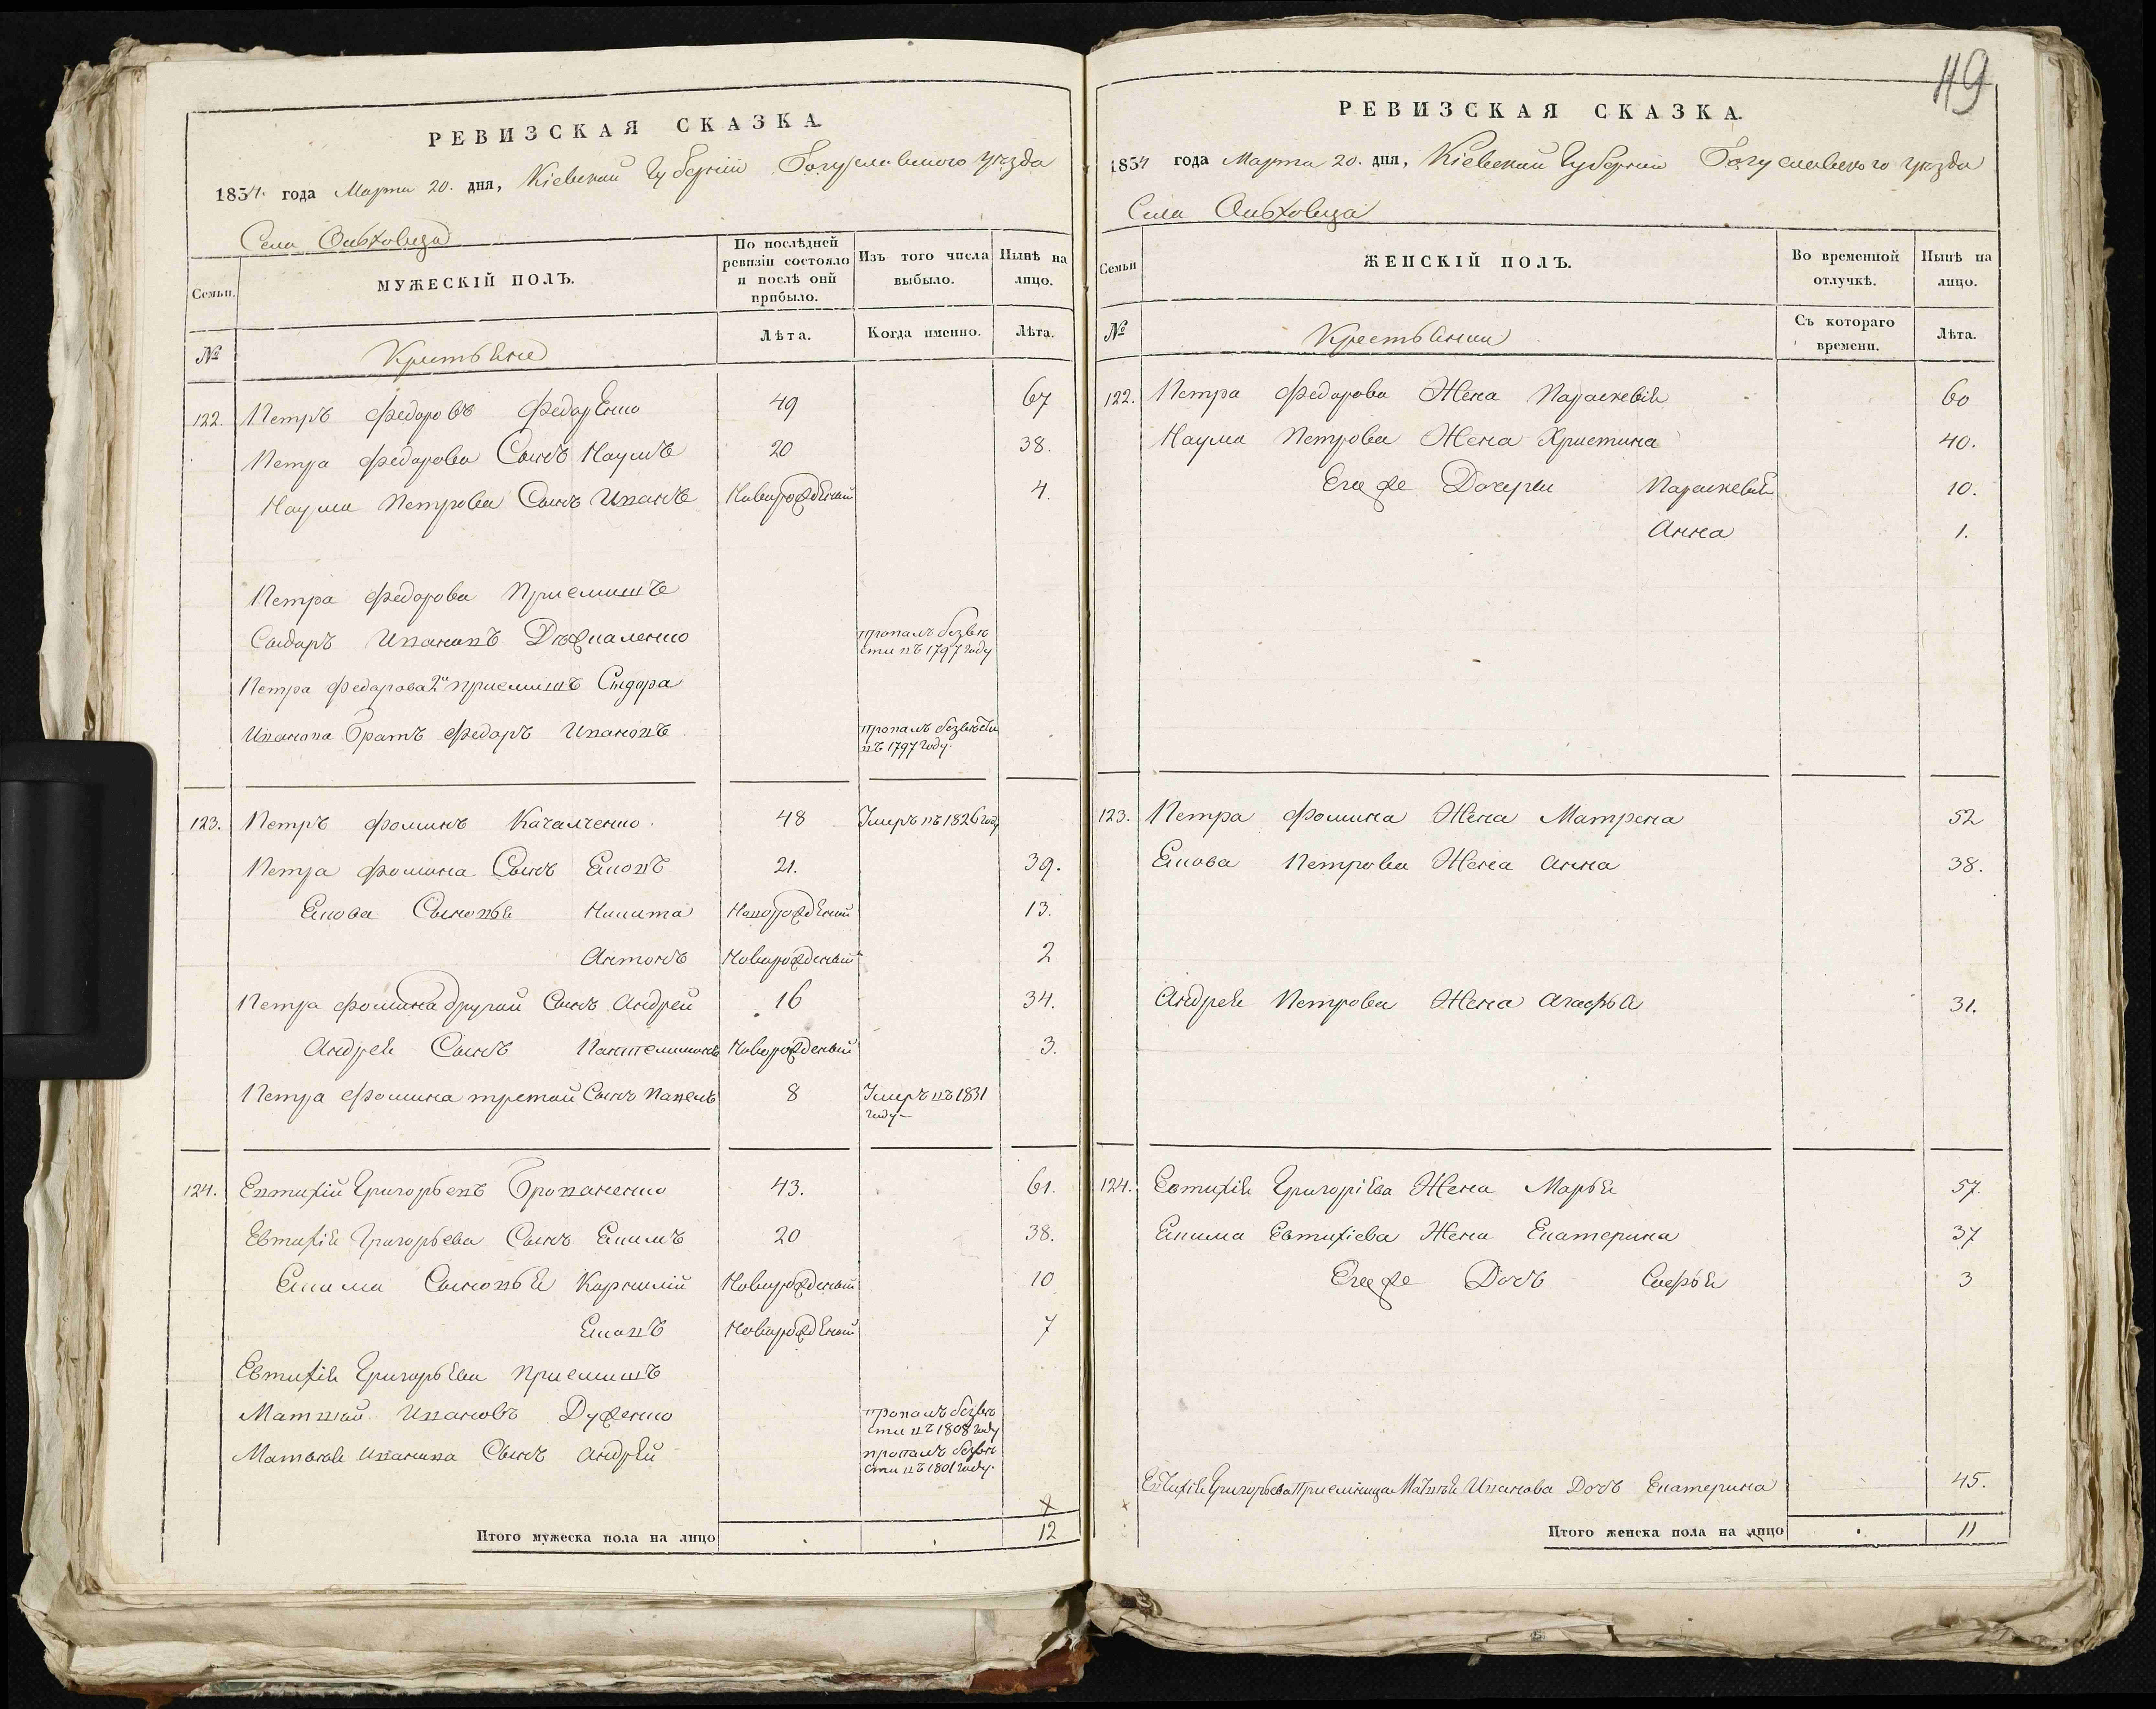 119
РЕВИЗСКАЯ СКАЗКА.
1834 года Марта 20. дня, Кіевской Губерніи Богуславского уѣзда
Села Ольховца
Семьи.
МУЖЕСКІЙ ПОЛЪ.
По послѣдней ревизіи состояло и послѣ оній прибыло.
Изъ того числа выбыло.
Нынѣ на лицо.
№
Крестьяне
Лѣта.
Когда именно.
Лѣта.
122. Петръ Федоровъ Федоренко 49 67
Петра Федорова Сынъ Наумъ 20 38.
Наума Петрова Сынъ Иванъ Новорожденый 4.
Петра Федорова Приемышъ
Сыдоръ Ивановъ пропалъ безвѣсти въ 1797 году
Петра Федорова 2й приемышъ Сыдора
Иванова Братъ Федоръ Ивановъ пропалъ безвѣсти въ 1797 году.
123. Петръ Фоминъ Качалченко. 48 Умеръ въ 1826 году
Петра Фомина Сынъ Яковъ 21. 39.
Якова Сыновья Никита Новорожденый 13.
Антонъ Новорожденый 2
Петра Фомина другой Сынъ Андрей 16 34.
Андрея Сынъ Пантелимонъ Новорожденый 3.
Петра Фомина третий Сынъ Павелъ 8 Умеръ въ 1831 году
124. Евтихій Григорьевъ 43. 61.
Евтихія Григорьева Сынъ Екимъ 20 38.
Екима Сыновья Корнилій Новорожденый 10
Яковъ Новорожденый 7
Евтихія Григорьева Приемышъ
Матвѣй Ивановъ Дуженко пропалъ безвѣсти въ 1808 году
Матвѣя Иванова Сынъ Андрей пропалъ безвѣсти въ 1801 году.
Итого мужеска пола на лицо 12
РЕВИЗСКАЯ СКАЗКА.
1834 года Марта 20. дня, Кіевской Губерніи Богуславского уѣзда
Села Ольховца
Семьи
ЖЕНСКІЙ ПОЛЪ.
Во временной отлучкѣ.
Нынѣ на лицо.
№
Крестьянки
Съ котораго времени.
Лѣта.
122. Петра Федорова Жена Параскевія 60
Наума Петрова Жена Христина 40.
Егоже Дочери Параскевія 10.
Анна 1.
123. Петра Фомина Жена Матрена 52
Якова Петрова Жена Анна 38.
Андрея Петрова Жена Агафья 31.
124. Евтихія Григоріева Жена Марья 57.
Екима Евтихіева Жена Екатерина 37
Егоже Дочь Софья 3
Евтихія Григорьева Приемница Матвѣя Иванова Дочь Екатерина 45.
Итого женска пола на лицо 11